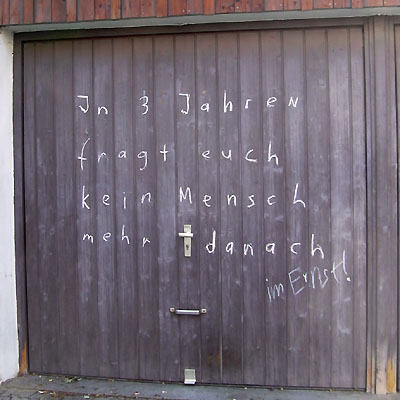 In 3 Jahren
fragt euch
kein Mensch
mehr danach
im Ernst!